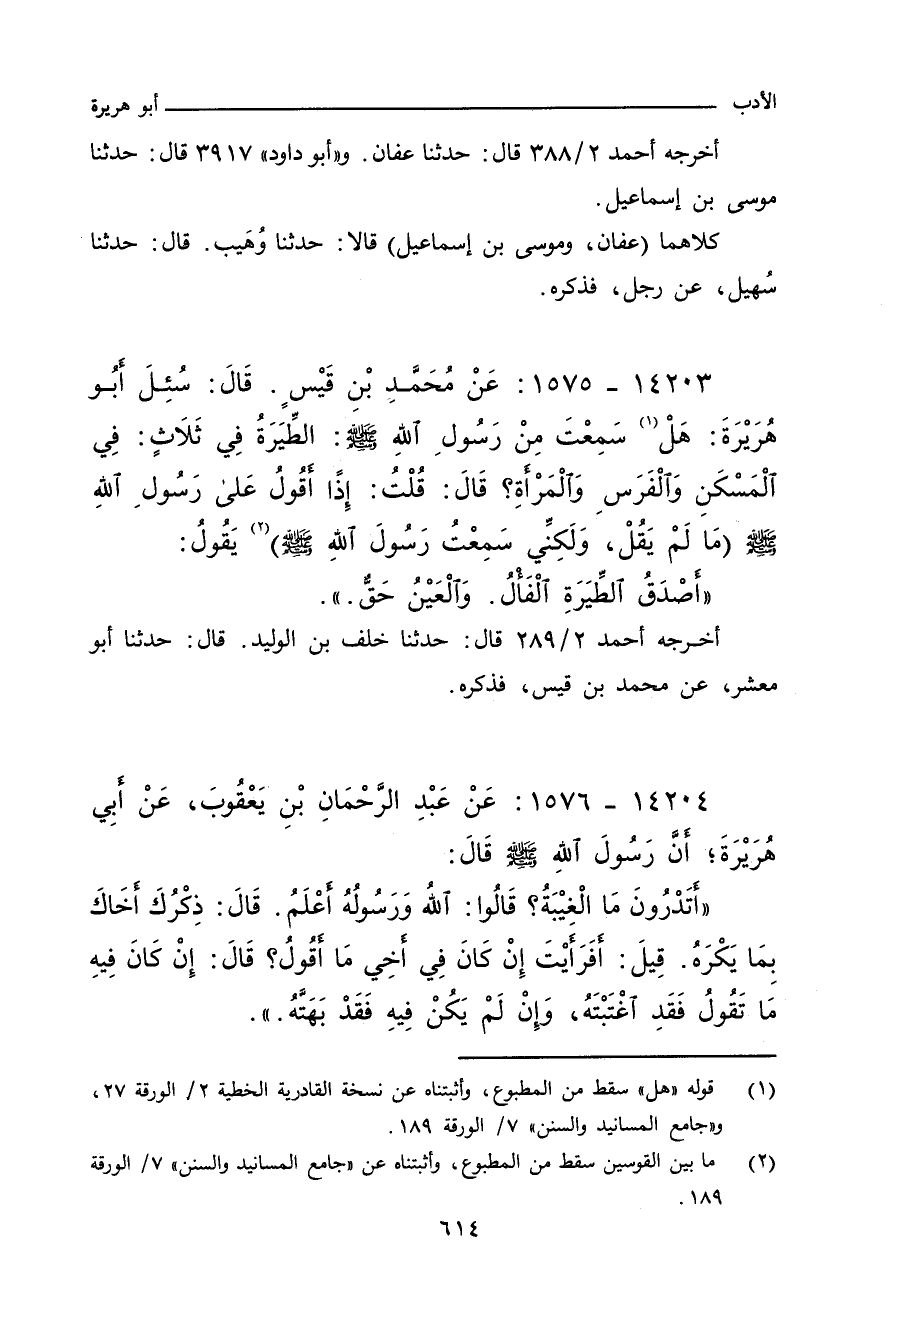 الأدب ـــــــــ أبو هريرة
أخرجه أحمد ٣٨٨/٢ قال: حدثنا عفان. و«أبو داود» ٣٩١٧ قال: حدثنا
موسى بن إسماعيل.
كلاهما (عفان، وموسى بن إسماعيل) قالا: حدثنا وُهَيب. قال: حدثنا
سُهيل، عن رجل، فذكره.
١٤٢٠٣ - ١٥٧٥: عَنْ مُحَمَّدِ بْنِ قَيْسٍ. قَالَ: سُئِلَ أَبُو
هُرَيْرَةَ: هَلْ(١) سَمِعْتَ مِنْ رَسُولِ ٱللهِ ﷺ: الطِّيَرَةُ فِي ثَلَاثٍ: فِي
ٱلْمَسْكَنِ وَٱلْفَرَسِ وَٱلْمَرْأَةِ؟ قَالَ: قُلْتُ: إِذًا أَقُولُ عَلىٰ رَسُولِ ٱللهِ
ﷺ (مَا لَمْ يَقُلْ، وَلَكِنِّي سَمِعْتُ رَسُولَ ٱللهِ ﷺ)(٢) يَقُولُ:
«أَصْدَقُ ٱلطِّيَرَةِ ٱلْفَأْلُ. وَٱلْعَيْنُ حَقٌّ.».
أخرجه أحمد ٢٨٩/٢ قال: حدثنا خلف بن الوليد. قال: حدثنا أبو
معشر، عن محمد بن قيس، فذكره.
١٤٢٠٤ - ١٥٧٦: عَنْ عَبْدِ الرَّحْمَانِ بْنِ يَعْقُوبَ، عَنْ أَبِي
هُرَيْرَةَ؛ أَنَّ رَسُولَ ٱللهِ ﷺ قَالَ:
«أَتَدْرُونَ مَا الْغِيْبَةُ؟ قَالُوا: ٱللهُ وَرَسُولُهُ أَعْلَمُ. قَالَ: ذِكْرُكَ أَخَاكَ
بِمَا يَكْرَهُ. قِيلَ: أَفَرَأَيْتَ إِنْ كَانَ فِي أَخِي مَا أَقُولُ؟ قَالَ: إِنْ كَانَ فِيهِ
مَا تَقُولُ فَقَدِ ٱغْتَبْتَهُ، وَإِنْ لَمْ يَكُنْ فِيهِ فَقَدْ بَهَتَّهُ.».
(١) قوله «هل» سقط من المطبوع، وأثبتناه عن نسخة القادرية الخطية ٢/ الورقة ٢٧،
و«جامع المسانيد والسنن» ٧/ الورقة ١٨٩.
(٢) ما بين القوسين سقط من المطبوع، وأثبتناه عن «جامع المسانيد والسنن» ٧/ الورقة
١٨٩.
٦١٤